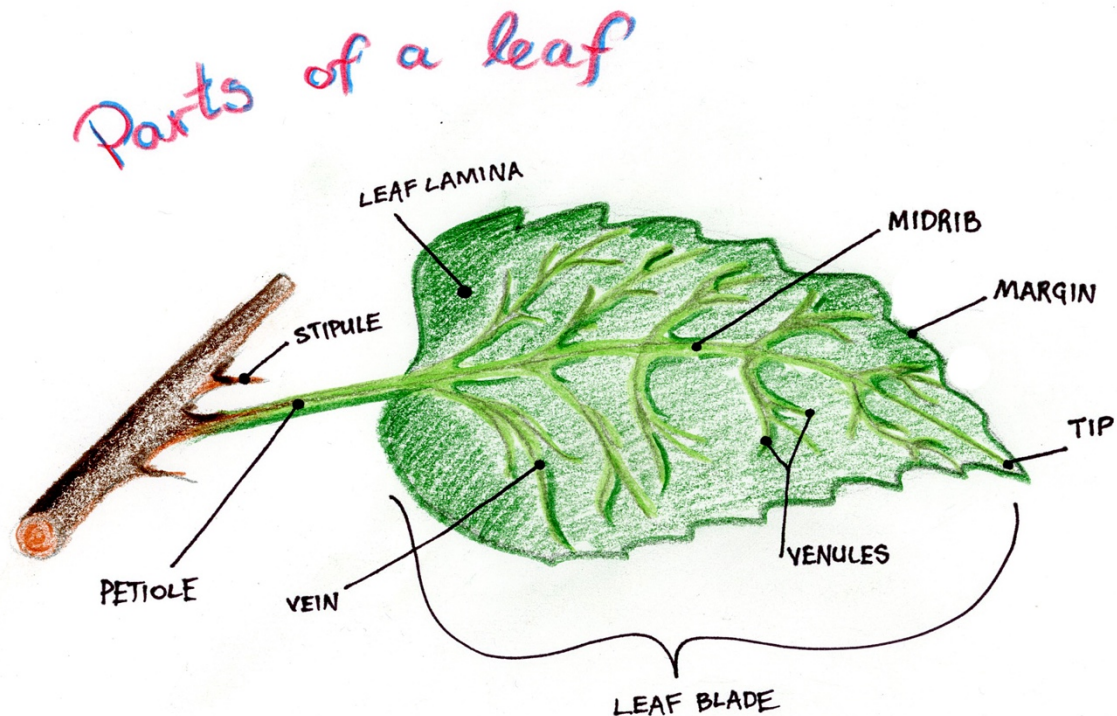 Parts of a leaf
LEAF LAMINA
MIDRIB
MARGIN
STIPULE
TIP
VENULES
PETIOLE
VEIN
LEAF BLADE